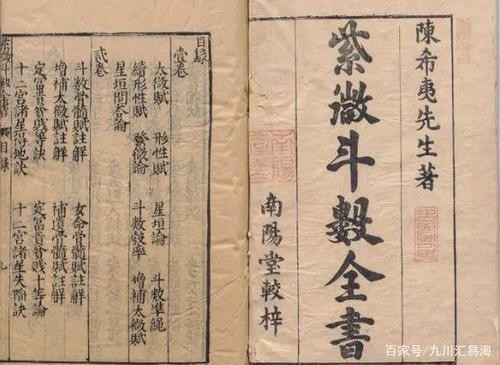 陳希夷先生著
紫微斗數全書
南陽堂較梓
目錄
壹卷
太微賦 形性賦 星垣論 斗數準繩
續形性賦 發微論 斗數發率 增補太微賦
星垣問答論
貳卷
斗數骨髓賦註解 女命骨髓賦註解
增補太微賦註解 補遺骨髓賦註解
定富貴貧賤等訣 定富貴貧賤十等論
十二宮諸星得地訣 十二宮諸星失陷訣
目錄
百家号/九川汇易海